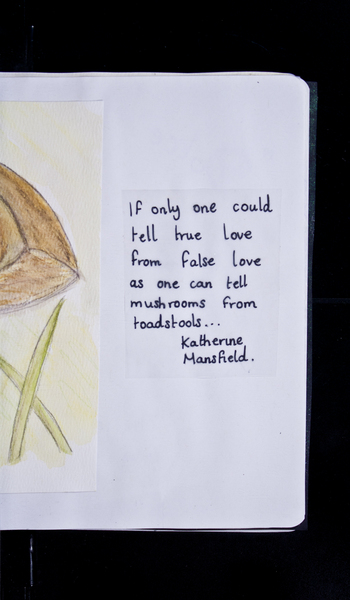 If only one could
tell true love
from false love
as one can tell
mushrooms from
toadstools...
Katherine
Mansfield.